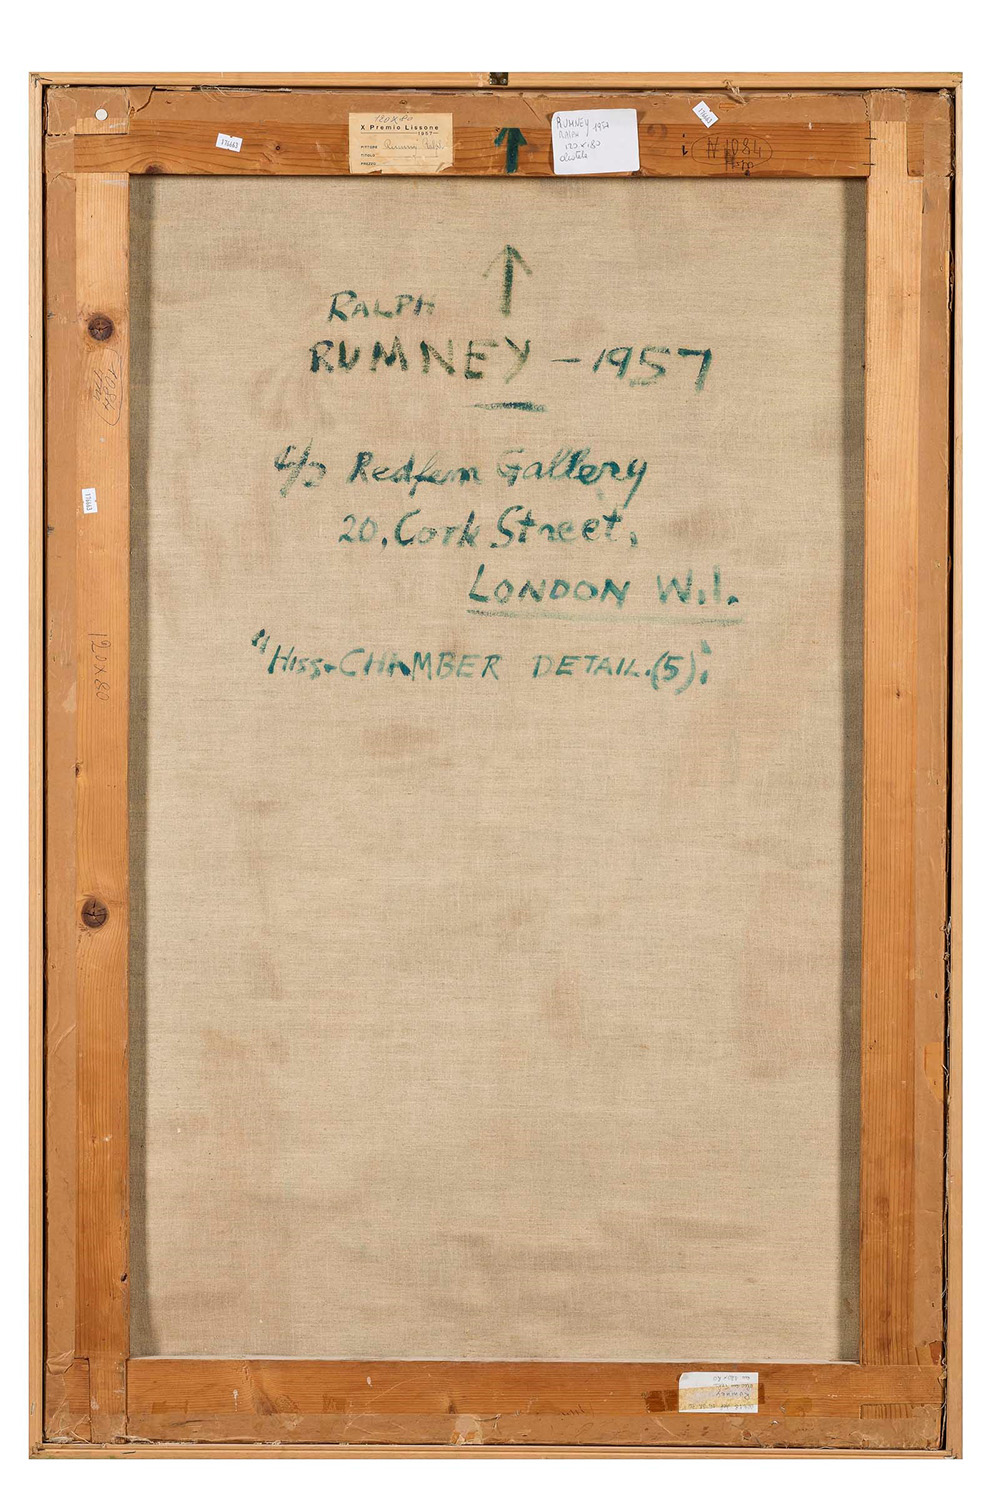 120x80
X Premio Lissone
1957
PITTORE Rumney Ralph
TITOLO
PREZZO
RUMNEY 1957
RALPH
120x180
176663
176663
N 1084
RALPH
RUMNEY - 1957
c/o Redfern Gallery
20, Cork Street,
LONDON W.1.
"HISS-CHAMBER DETAIL.(5)"
1084
176663
120x80
RUMNEY